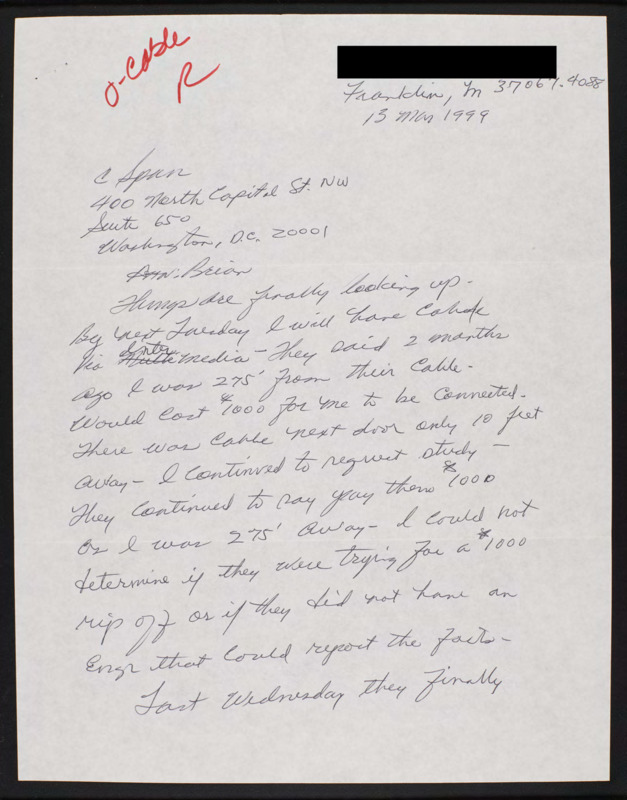 O-Cable
R
Franklin, Tn 37067-4088
13 Mar 1999
C Span
400 North Capitol St. NW
Suite 650
Washington, D.C. 20001
Brian
Things are finally looking up.
By next Tuesday I will have Cable
Via Inter Media - They said 2 months
ago I was 275' from their Cable.
Would Cost $1000 for me to be Connected.
There was Cable next door only 10 feet
away - I Continued to request study -
They Continued to say pay them $1000
as I was 275' away - I Could not
determine if they were trying for a $1000
rip off or if they did not have an
Engr that Could report the facts -
Last Wednesday they finally